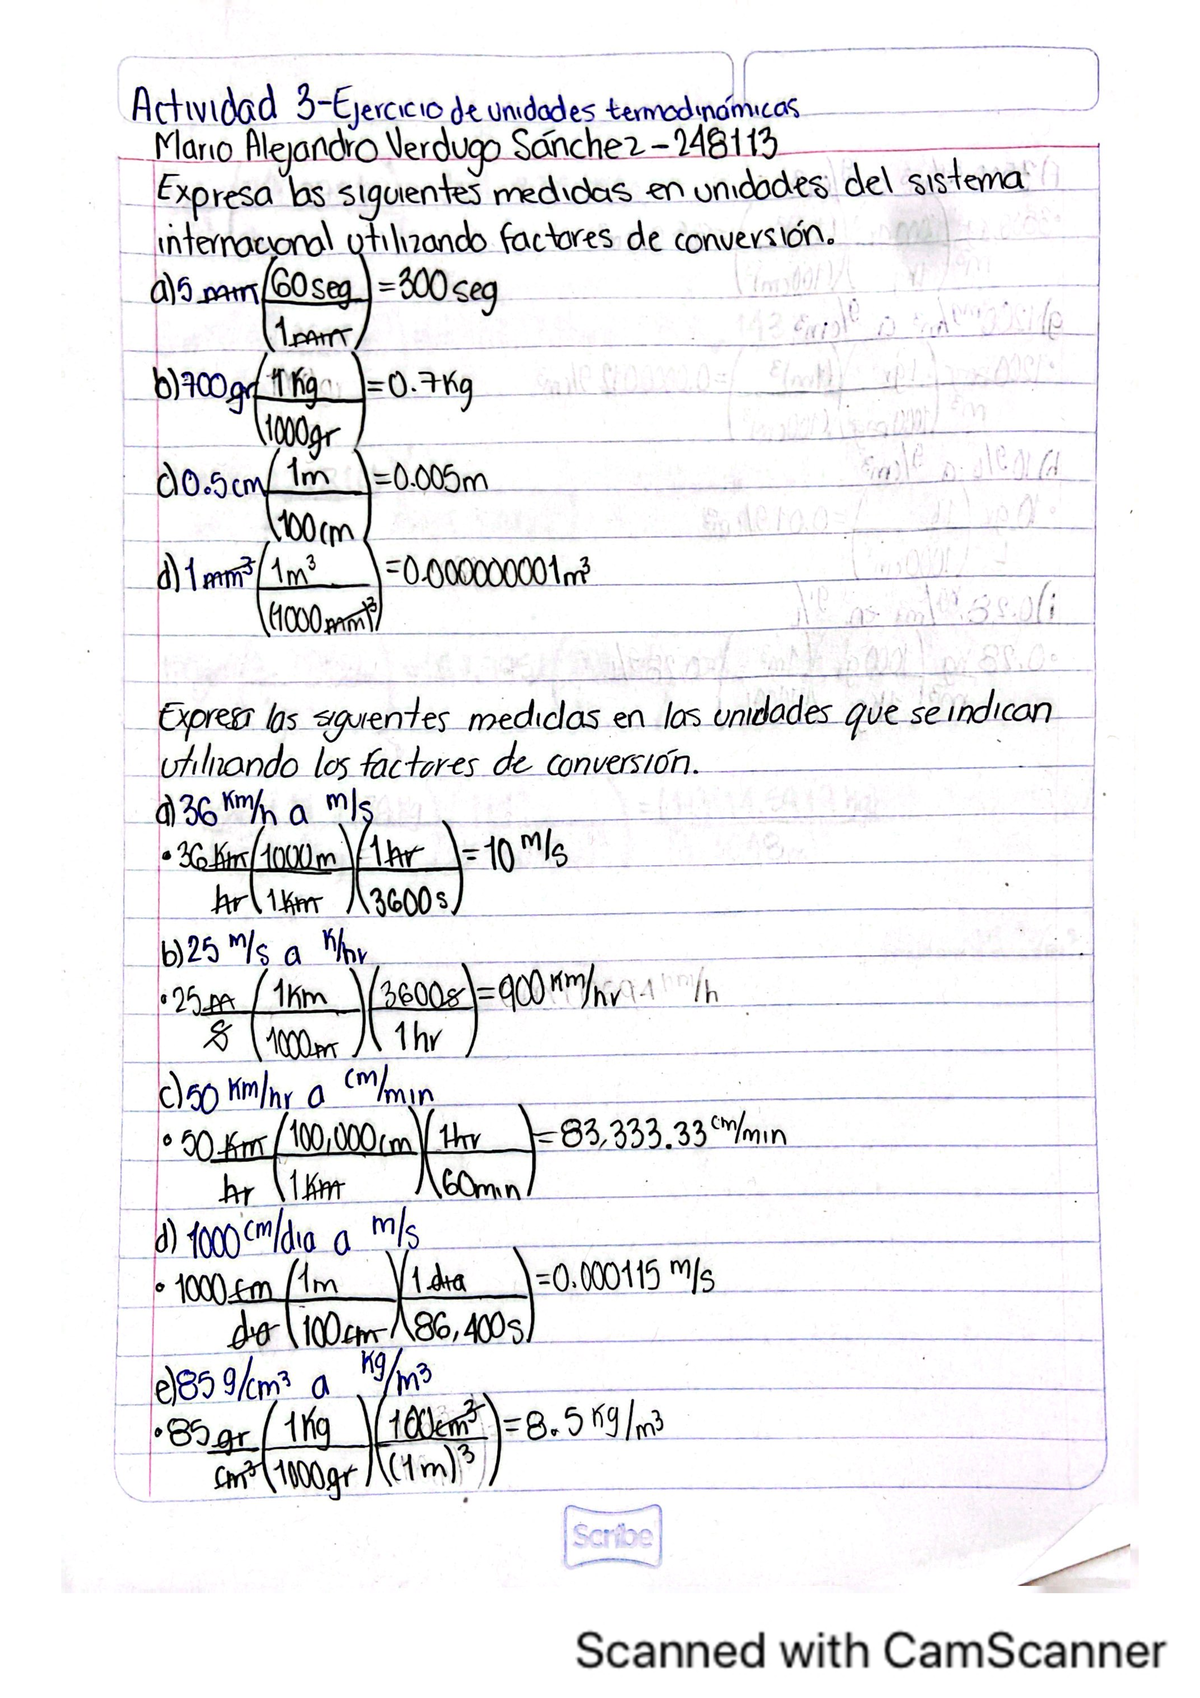 Actividad 3-Ejercicio de unidades termodinámicas
Mario Alejandro Verdugo Sánchez-248113
Expresa las siguientes medidas en unidades del sistema
internacional utilizando factores de conversión.
a)5 min(60seg/1min)=300seg
b)700gr(1Kg/1000gr)=0.7Kg
c)0.5cm(1m/100cm)=0.005m
d)1mm³(1m³/(1000mm)³)=0.000000001m³
Expresa las siguientes medidas en las unidades que se indican
utilizando los factores de conversión.
a)36 Km/h a m/s
•36Km/hr(1000m/1Km)(1hr/3600s)=10 m/s
b)25 m/s a K/hr
•25m/s(1Km/1000m)(3600s/1hr)=900 Km/hr
c)50 Km/hr a cm/min
•50Km/hr(100,000cm/1Km)(1hr/60min)=83,333.33 cm/min
d) 1000 cm/dia a m/s
•1000cm/dia(1m/100cm)(1dia/86,400s)=0.000115 m/s
e)85 g/cm³ a Kg/m³
•85gr/cm³(1Kg/1000gr)(100cm³/(1m)³)=8.5 Kg/m³
Scribe
Scanned with CamScanner